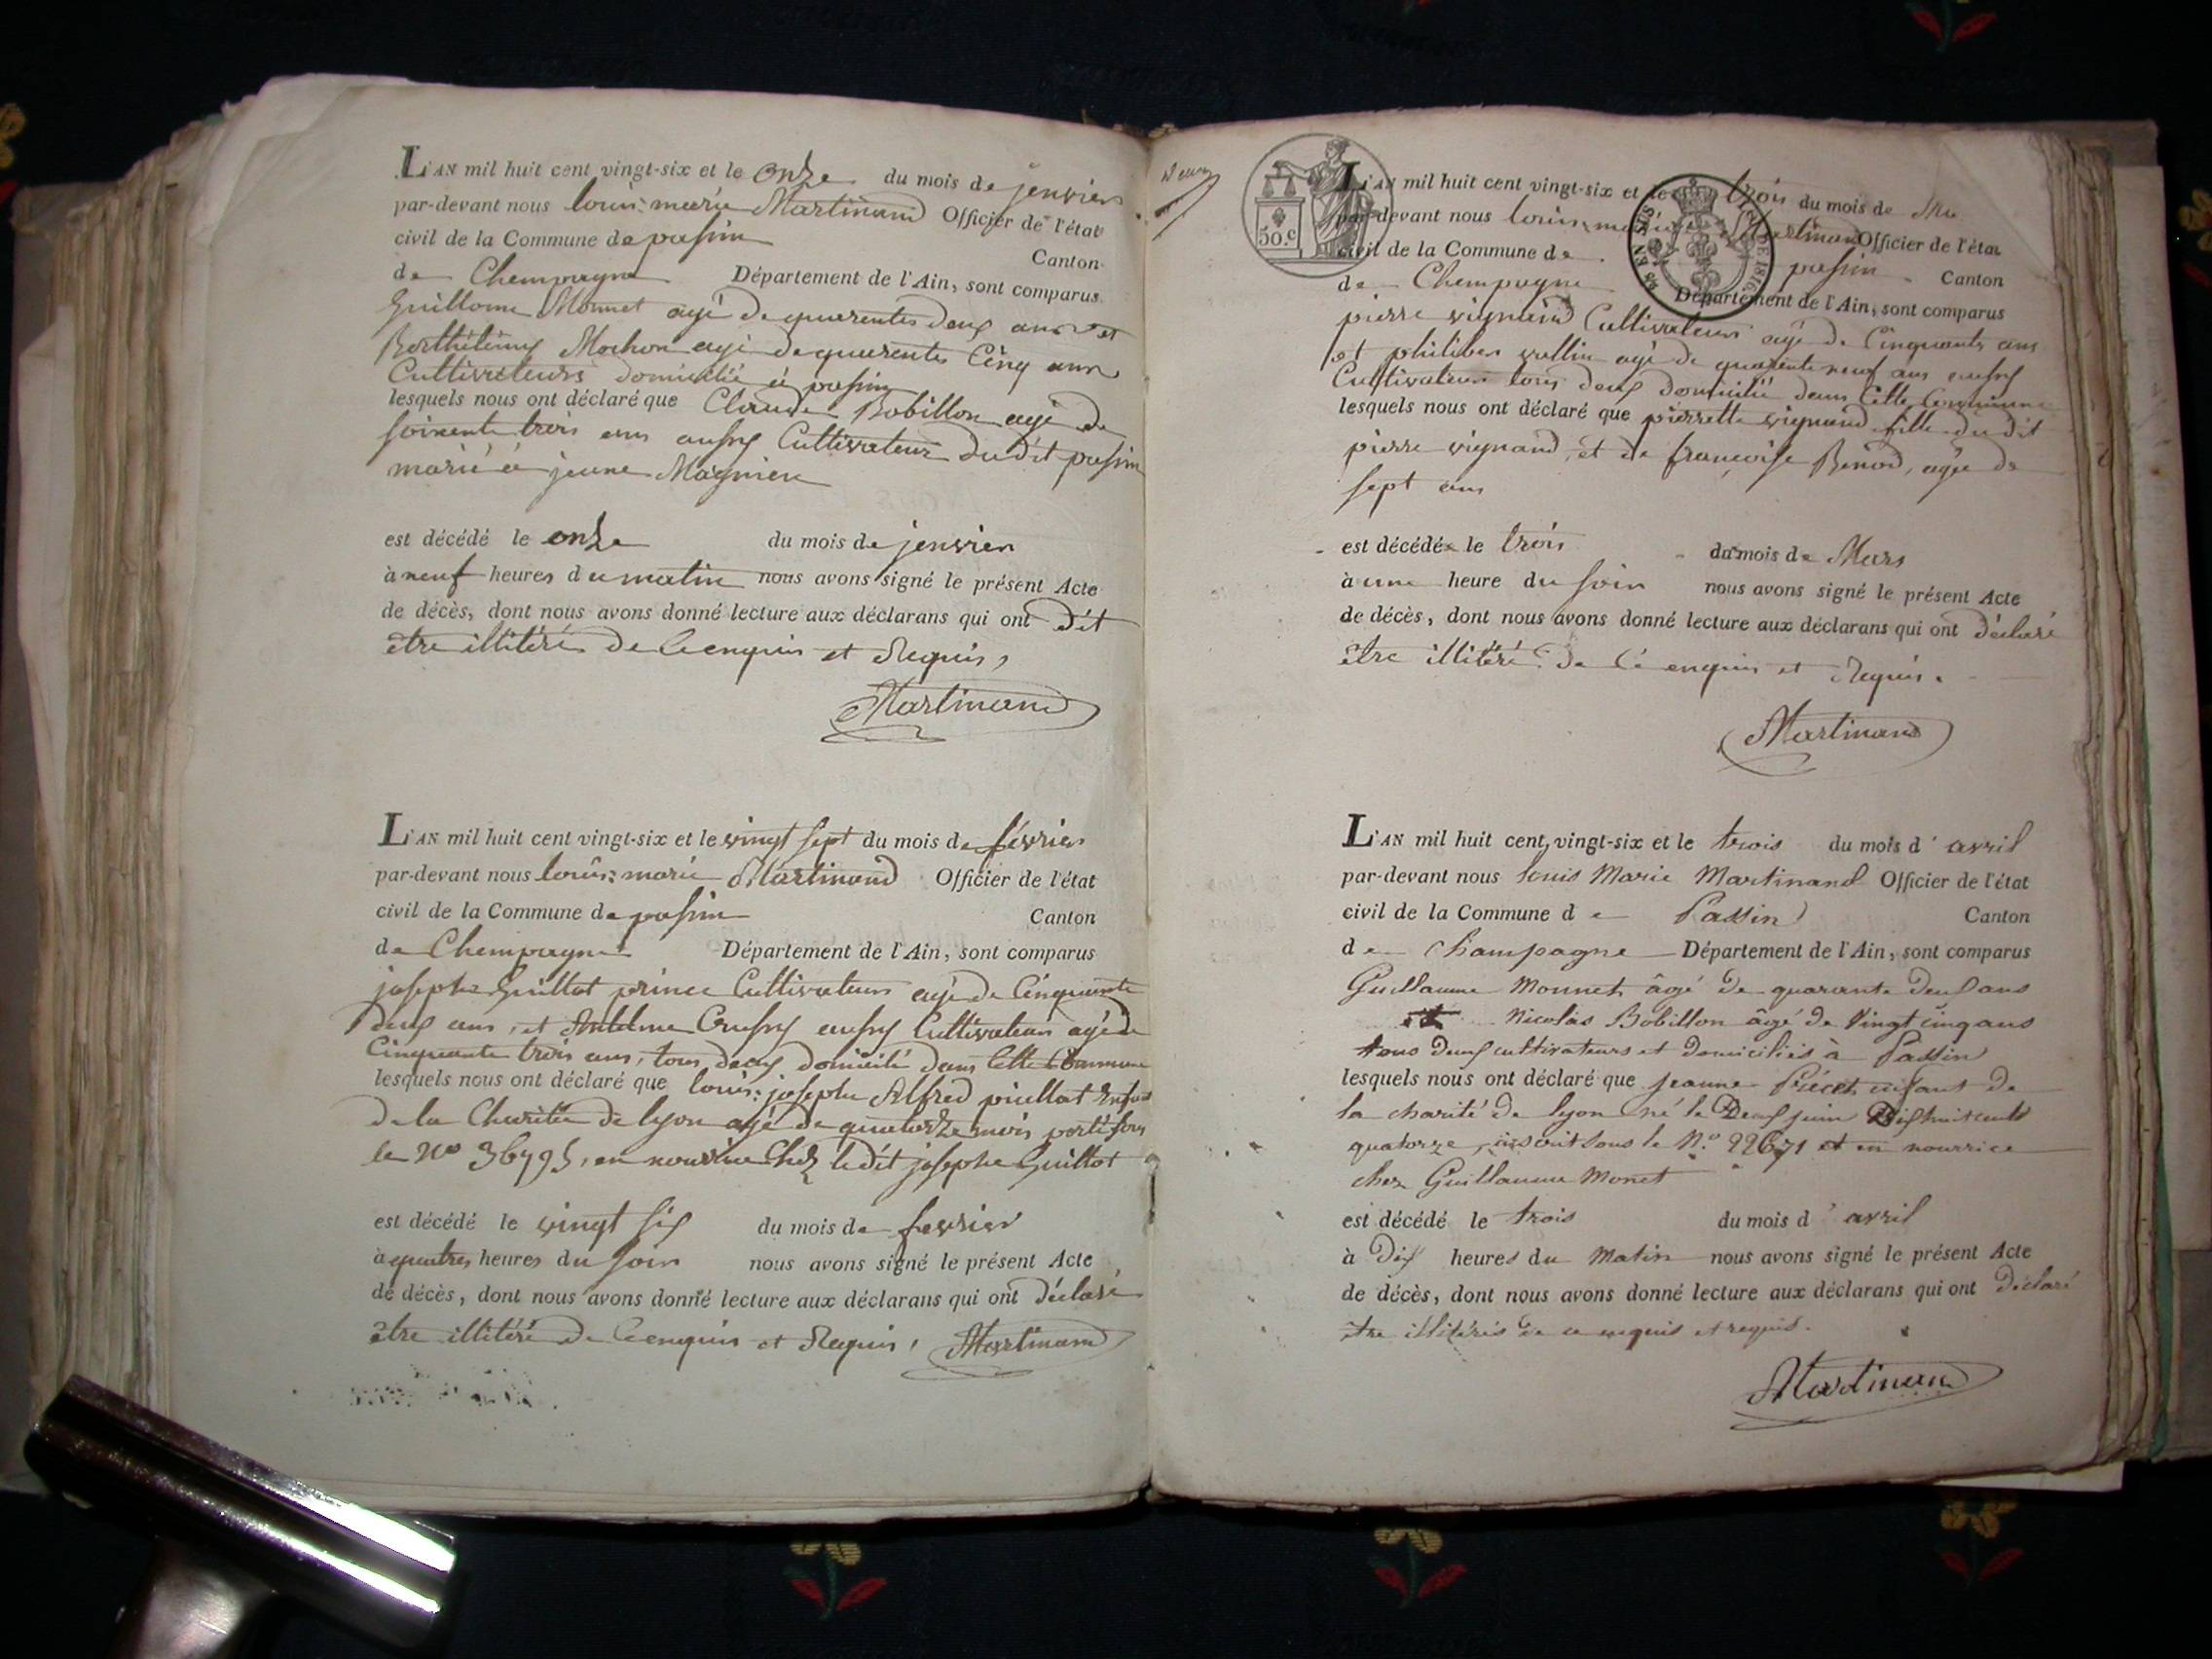 L'AN mil huit cent vingt-six et le onze du mois de jenvier
par-devant nous louis: marie Martinand Officier de l'état
civil de la Commune de passin
Canton
de Chempagne Département de l'Ain, sont comparus
Guillome Monnet agé de quarentes deux ans et
Berthélémy Mochon agé de quarentes Cinq ans
Cultivateurs domicilié à passin
lesquels nous ont déclaré que Claude Bobillon agé de
soixente trois ans aussy Cultivateur du dit passin
marié à jeune
est décédé le onze du mois de jenvier
à neuf heures du matin nous avons signé le présent Acte
de décès, dont nous avons donné lecture aux déclarans qui ont dit
être illitéré de Ce enquis et Requis,
Martinand
L'AN mil huit cent vingt-six et le vingt sept du mois de février
par-devant nous louis: marie Martinand Officier de l'état
civil de la Commune de passin Canton
de Chempagne Département de l'Ain, sont comparus
josephe Guillot prince Cultivateur agé de Cinquante
deux ans, et Antelme aussy Cultivateur agé de
Cinquante trois ans, tous deux domicilié dans Cette Commune
lesquels nous ont déclaré que louis: josephe Alfred piellat enfant
de la Charitée de lyon agé de quatorze mois porté sous
le No 36795, en nourrice Chez le dit josephe Guillot
est décédé le vingt six du mois de fevrier
à quatres heures du soir nous avons signé le présent Acte
de décès, dont nous avons donné lecture aux déclarans qui ont déclaré
être illitéré de Ce enquis et Requis, Martinand
50.c
L'AN mil huit cent vingt-six et le trois du mois de
par-devant nous louis: marie Martinand Officier de l'état
civil de la Commune de passin Canton
de Chempagne Département de l'Ain, sont comparus
pierre vignand Cultivateur agé de Cinquante ans
et philiber vallin agé de quarente neuf ans aussy
Cultivateur tous deux domicilié dans Cette Commune
lesquels nous ont déclaré que pierrette vignand fille du dit
pierre vignand, et de françoise Benod, agée de
sept ans
est décédée le trois du mois de Mars
à une heure du soir nous avons signé le présent Acte
de décès, dont nous avons donné lecture aux déclarans qui ont déclaré
être illitéré de Ce enquis et Requis.
Martinand
L'AN mil huit cent vingt-six et le trois du mois d'avril
par-devant nous louis Marie Martinand Officier de l'état
civil de la Commune de Passin Canton
de Champagne Département de l'Ain, sont comparus
Guillaume Monnet âgé de quarante deux ans
et Nicolas Bobillon âgé de Vingt cinq ans
tous deux cultivateurs et domiciliés à Passin
lesquels nous ont déclaré que jeanne enfant de
la charité de lyon né le Deux juin Dix huit cent
quatorze, inscrit sous le N.o 22671 et en nourrice
chez Guillaume Monet
est décédé le trois du mois d'avril
à Dix heures du Matin nous avons signé le présent Acte
de décès, dont nous avons donné lecture aux déclarans qui ont déclaré
être illitérés de ce enquis et requis.
Martinand